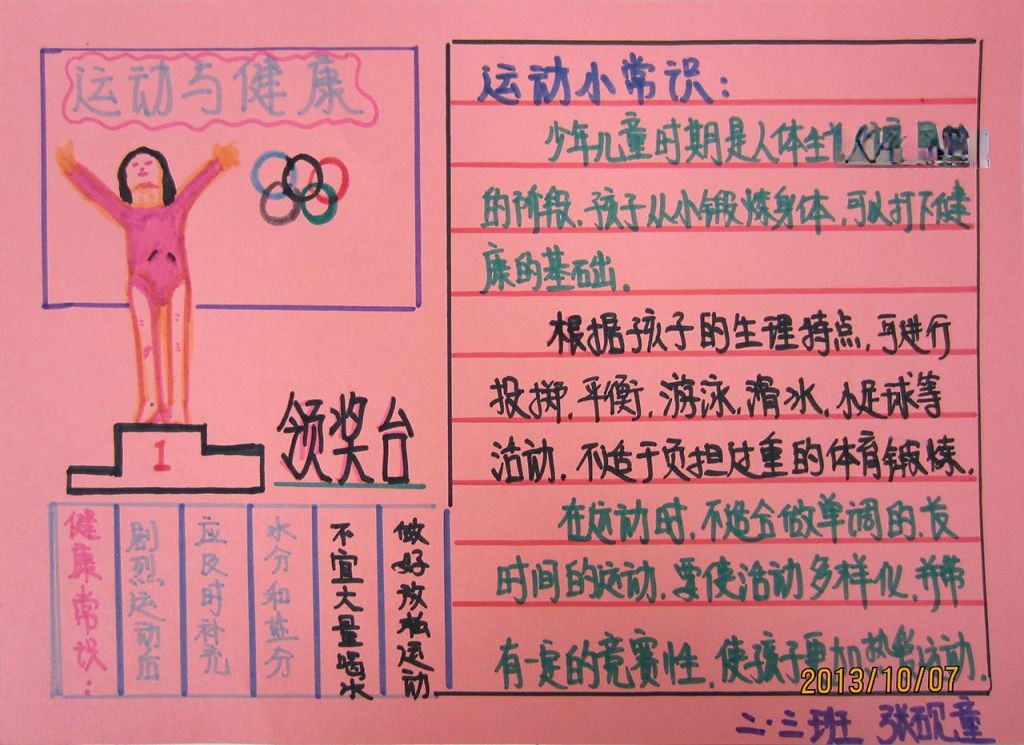 运动与健康
1
领奖台
健康常识：
剧烈运动后
应及时补充
水分和盐分
不宜大量喝水
做好放松运动
运动小常识：
少年儿童时期是人体生
的阶段.孩子从小锻炼身体,可以打下健
康的基础出.
根据孩子的生理特点,可进行
投掷,平衡,游泳,滑冰,小足球等
活动,不适于负担过重的体育锻炼.
在运动时,不适合做单调的.长
时间的运动.要使活动多样化,并带
有一定的竞赛性,使孩子更加热爱运动.
2013/10/07
二·三班 张砚童